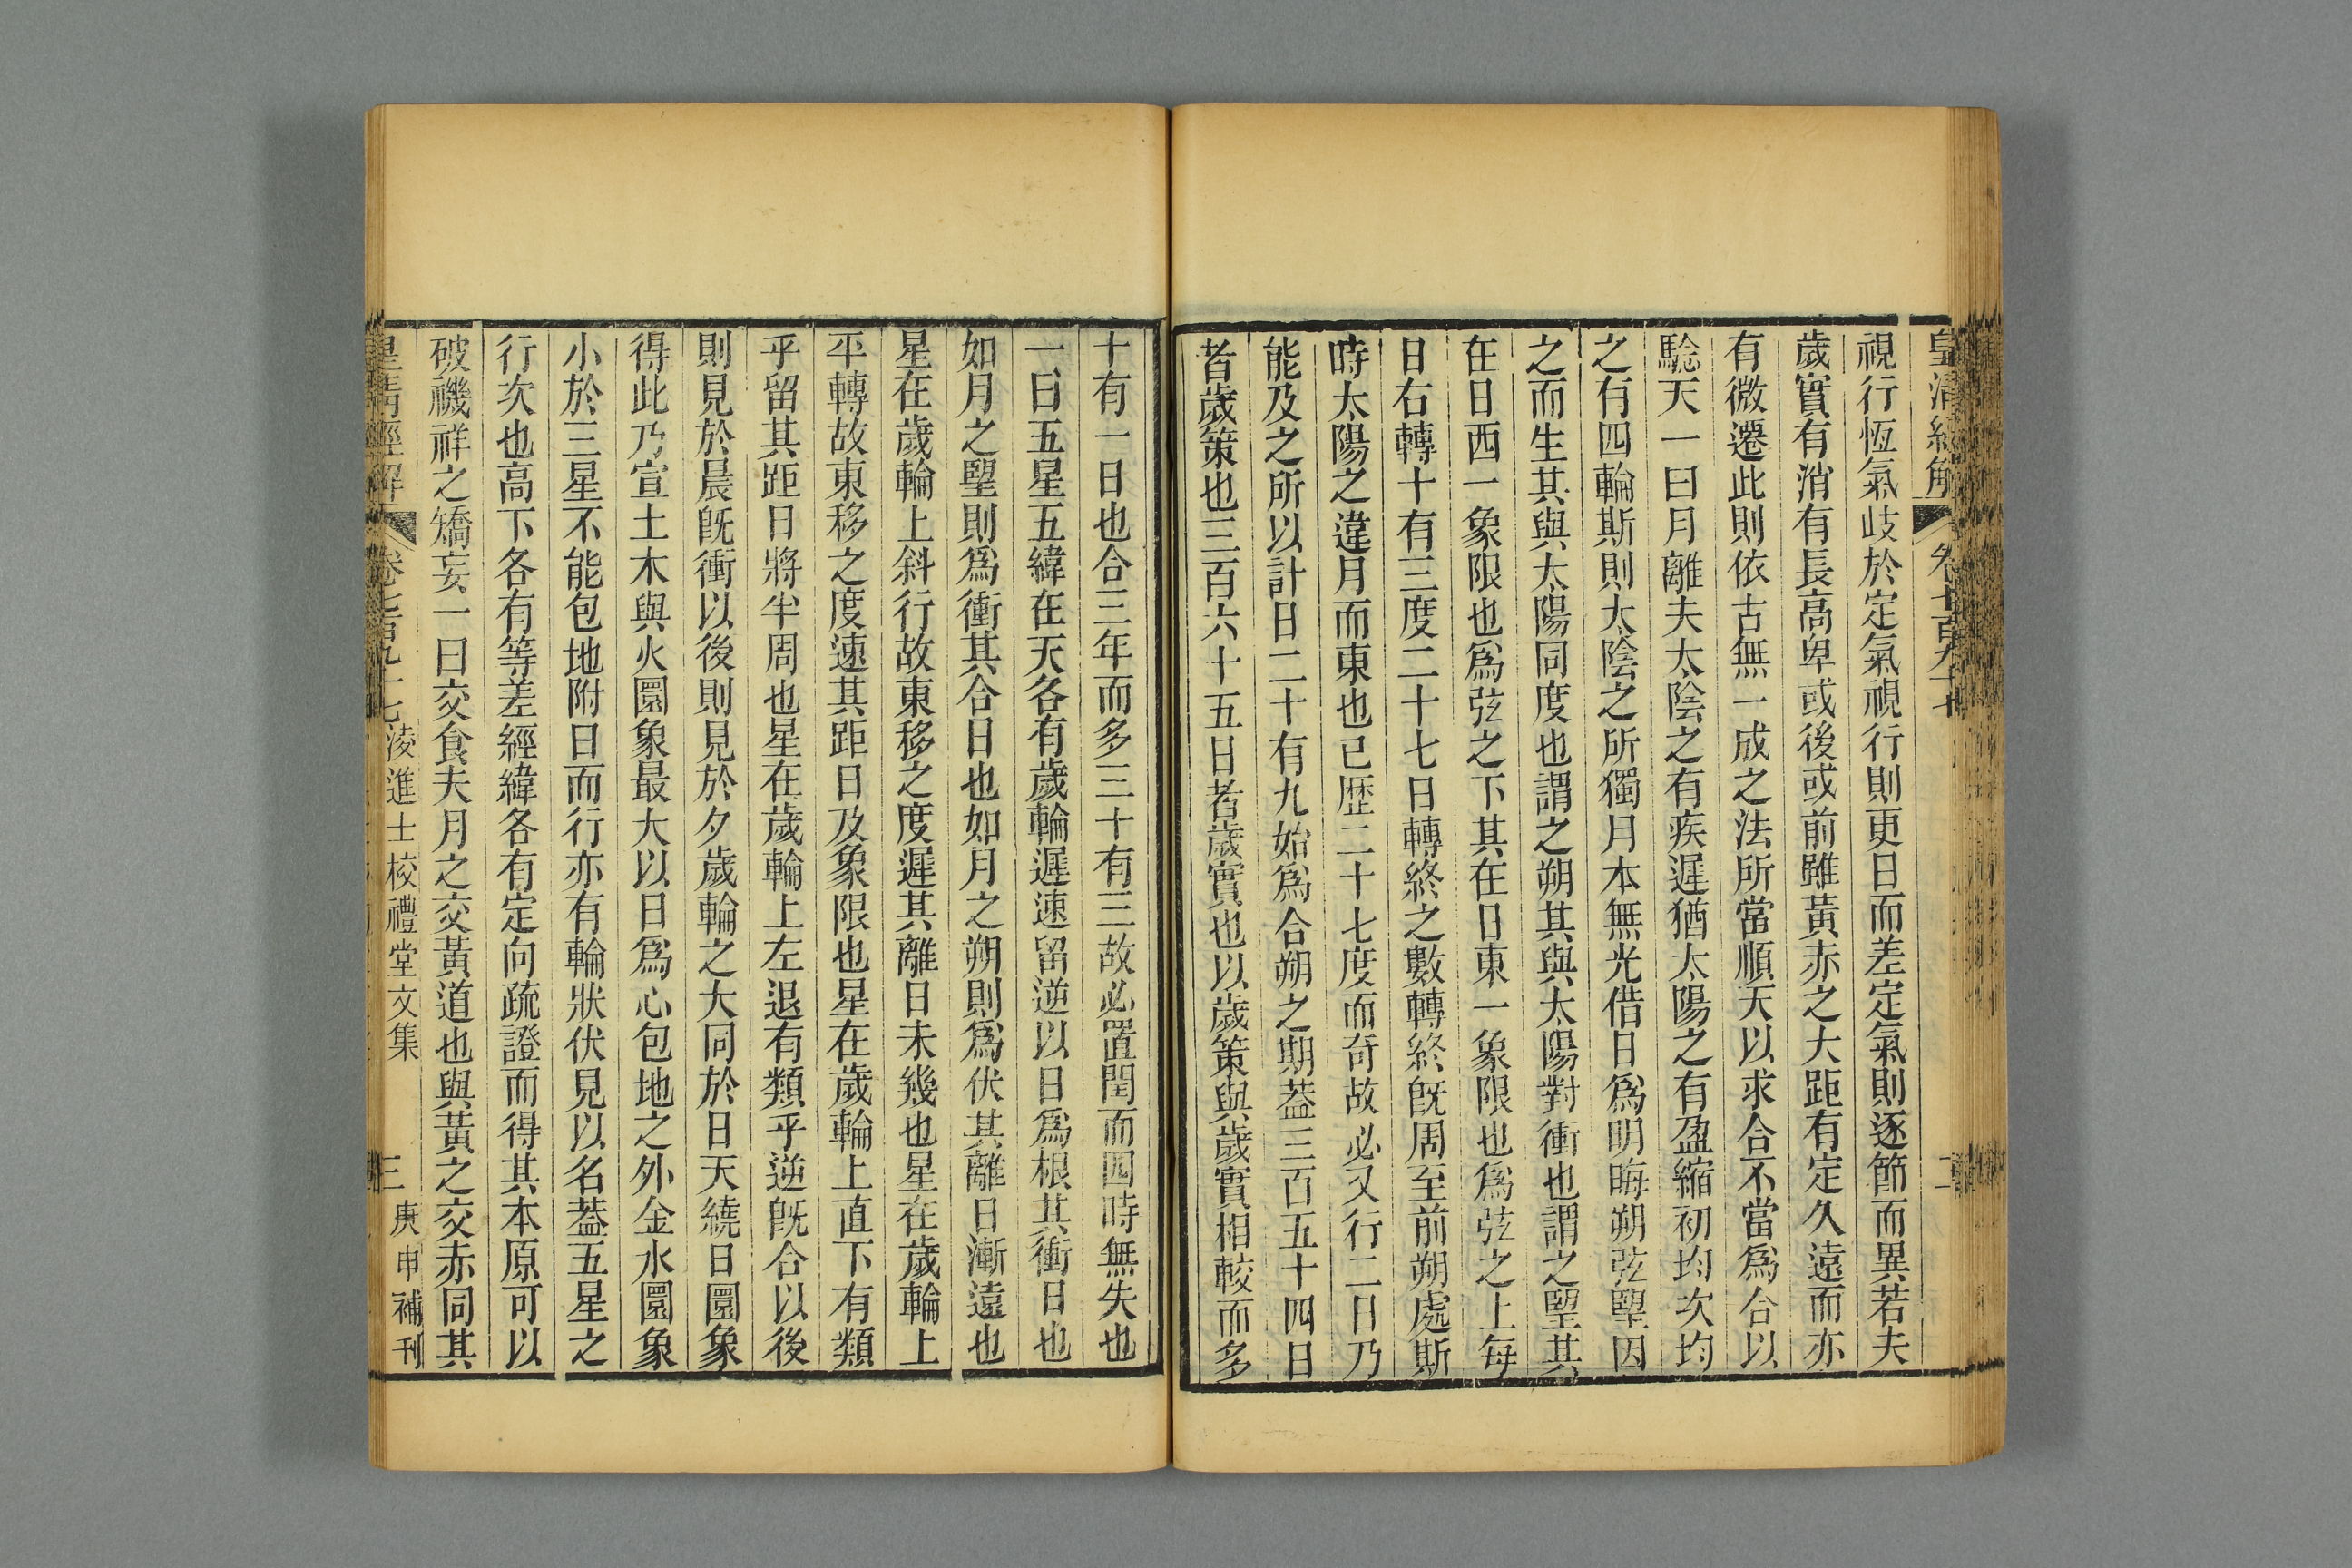 皇清經解 卷七百九十七 二
視行恆氣歧於定氣視行則更日而差定氣則逐節而異若夫
歲實有消有長高卑或後或前雖黃赤之大距有定久遠而亦
有微遷此則依古無一成之法所當順天以求合不當爲合以
驗天一曰月離夫太陰之有疾遲猶太陽之有盈縮初均次均
之有四輪斯則太陰之所獨月本無光借日爲明晦朔弦朢因
之而生其與太陽同度也謂之朔其與太陽對衝也謂之朢其
在日西一象限也爲弦之下其在日東一象限也爲弦之上每
日右轉十有三度二十七日轉終之數轉終既周至前朔處斯
時太陽之違月而東也已歷二十七度而奇故必又行二日乃
能及之所以計日二十有九始爲合朔之期葢三百五十四日
者歲策也三百六十五日者歲實也以歲策與歲實相較而多
十有一日也合三年而多三十有三故必置閏而四時無失也
一曰五星五緯在天各有歲輪遲速留逆以日爲根其衝日也
如月之朢則爲衝其合日也如月之朔則爲伏其離日漸遠也
星在歲輪上斜行故東移之度遲其離日未幾也星在歲輪上
平轉故東移之度速其距日及象限也星在歲輪上直下有類
乎留其距日將半周也星在歲輪上左退有類乎逆既合以後
則見於晨既衝以後則見於夕歲輪之大同於日天繞日圜象
得此乃宣土木與火圜象最大以日爲心包地之外金水圜象
小於三星不能包地附日而行亦有輪狀伏見以名葢五星之
行次也高下各有等差經緯各有定向疏證而得其本原可以
破禨祥之矯妄一曰交食夫月之交黃道也與黃之交赤同其
皇清經解 卷七百九十七 淩進士校禮堂文集 三 庚申補刊